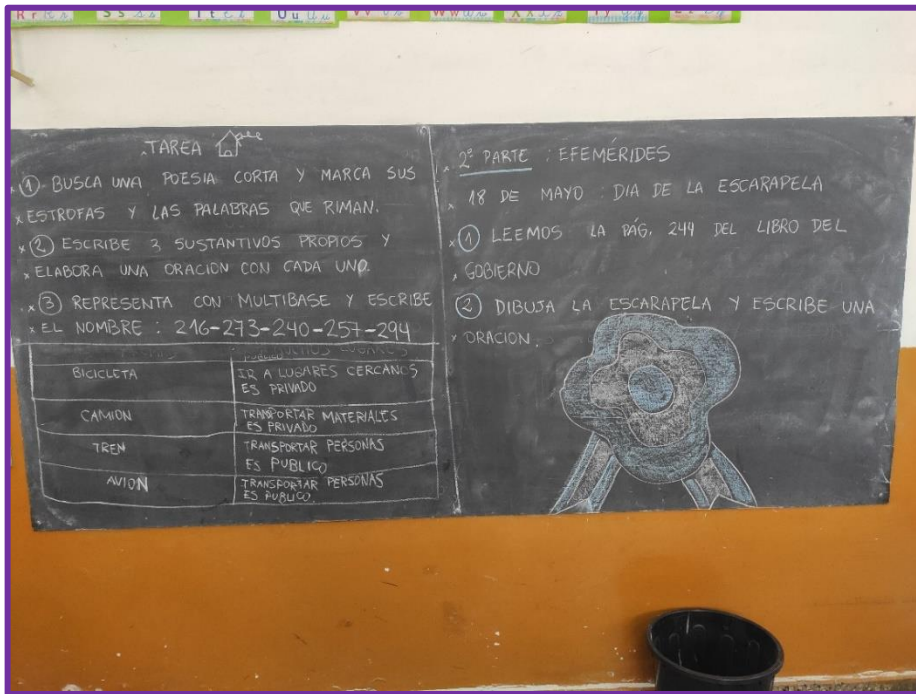 R r R r S s S s T t T t U u U u V v W w W w X x X x Y y
TAREA
1 BUSCA UNA POESIA CORTA Y MARCA SUS
ESTROFAS Y LAS PALABRAS QUE RIMAN.
2 ESCRIBE 3 SUSTANTIVOS PROPIOS Y
ELABORA UNA ORACION CON CADA UNO.
3 REPRESENTA CON MULTIBASE Y ESCRIBE
EL NOMBRE : 216-273-240-257-294
BICICLETA
IR A LUGARES CERCANOS
ES PRIVADO
CAMION
TRANSPORTAR MATERIALES
ES PRIVADO
TREN
TRANSPORTAR PERSONAS
ES PUBLICO
AVION
TRANSPORTAR PERSONAS
ES PUBLICO.
2° PARTE : EFEMÉRIDES
18 DE MAYO : DIA DE LA ESCARAPELA
1 LEEMOS LA PÁG. 244 DEL LIBRO DEL
GOBIERNO
2 DIBUJA LA ESCARAPELA Y ESCRIBE UNA
ORACION.